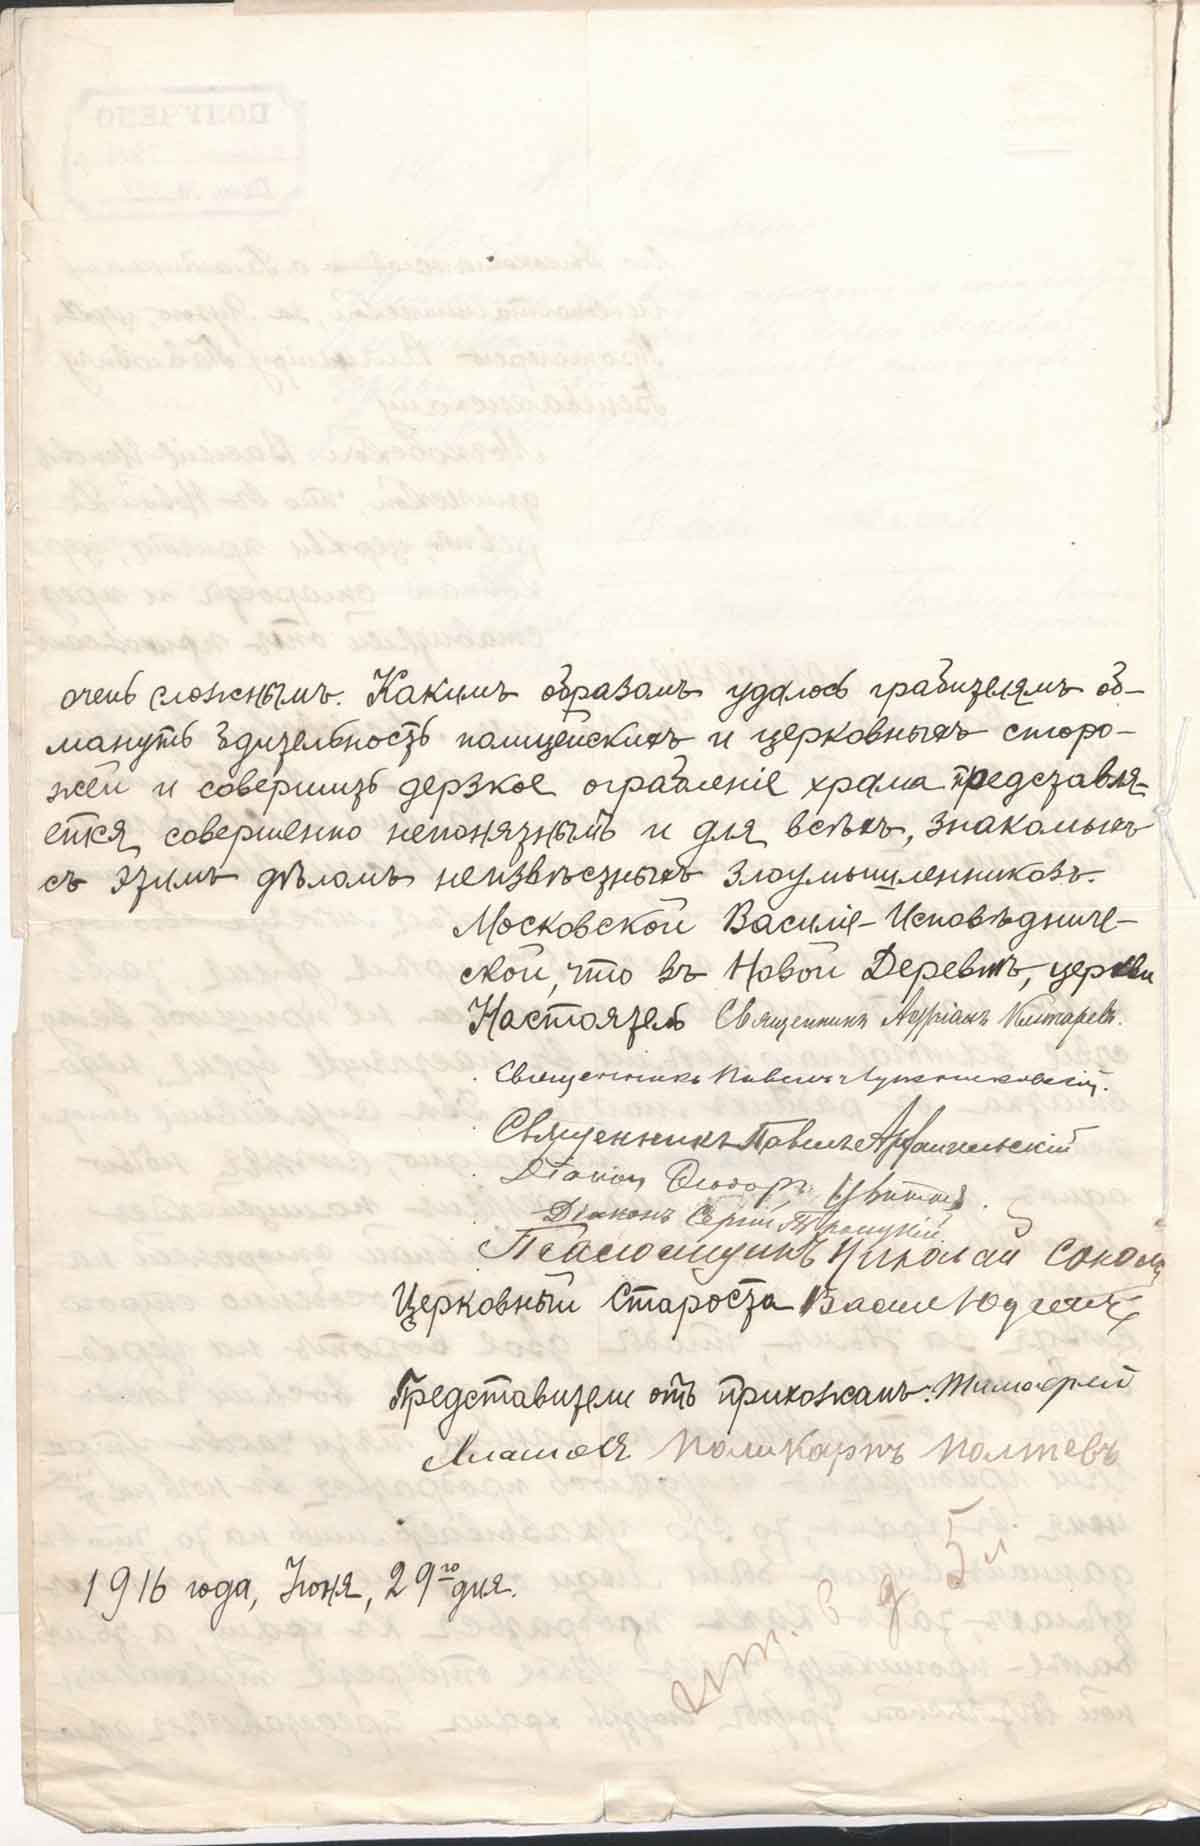 очень сложнымъ. Какимъ образомъ удалось грабителямъ об-
мануть бдительность полицейскихъ и церковныхъ сторо-
жей и совершить дерзкое ограбленіе храма представля-
ется совершенно непонятнымъ и для всѣхъ, знакомыхъ
съ этимъ дѣломъ неизвѣстныхъ злоумышленниковъ.
Московской Василіе-Исповѣдниче-
ской, что въ Новой Деревнѣ, церкви
Настоятель Священникъ
Священникъ Павелъ
Священникъ Павелъ Архангельскій
Діаконъ Ѳеодоръ Цвѣтковъ
Діаконъ Сергій Троицкій
Псаломщикъ Николай Соколовъ
Церковный Староста
Представители отъ прихожанъ: Тимофей
Поликарпъ Полтевъ
1916 года, Іюня, 29го дня.
5 л.